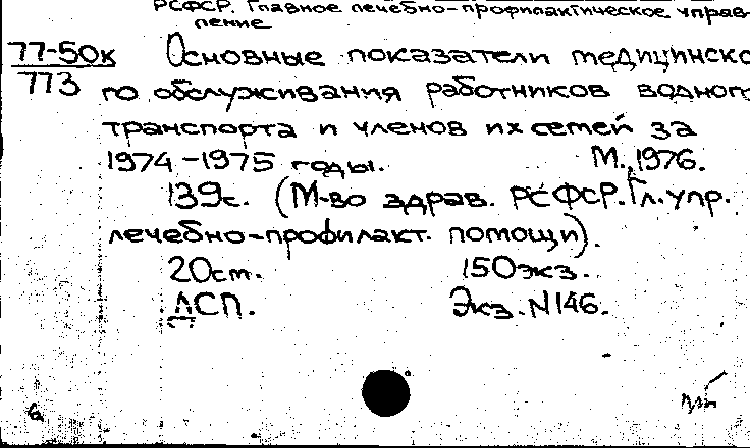 РСФСР. Главное лечебно-профилактическое управ-
ление
77-50к Основные показатели медицинско
773 го обслуживания работников водного
транспорта и членов их семей за
1974-1975 годы. М., 1976.
139с. (М-во здрав. РСФСР. Гл. упр.
лечебно-профилакт. помощи).
20см. 150экз.
ДСП. Экз. N146.